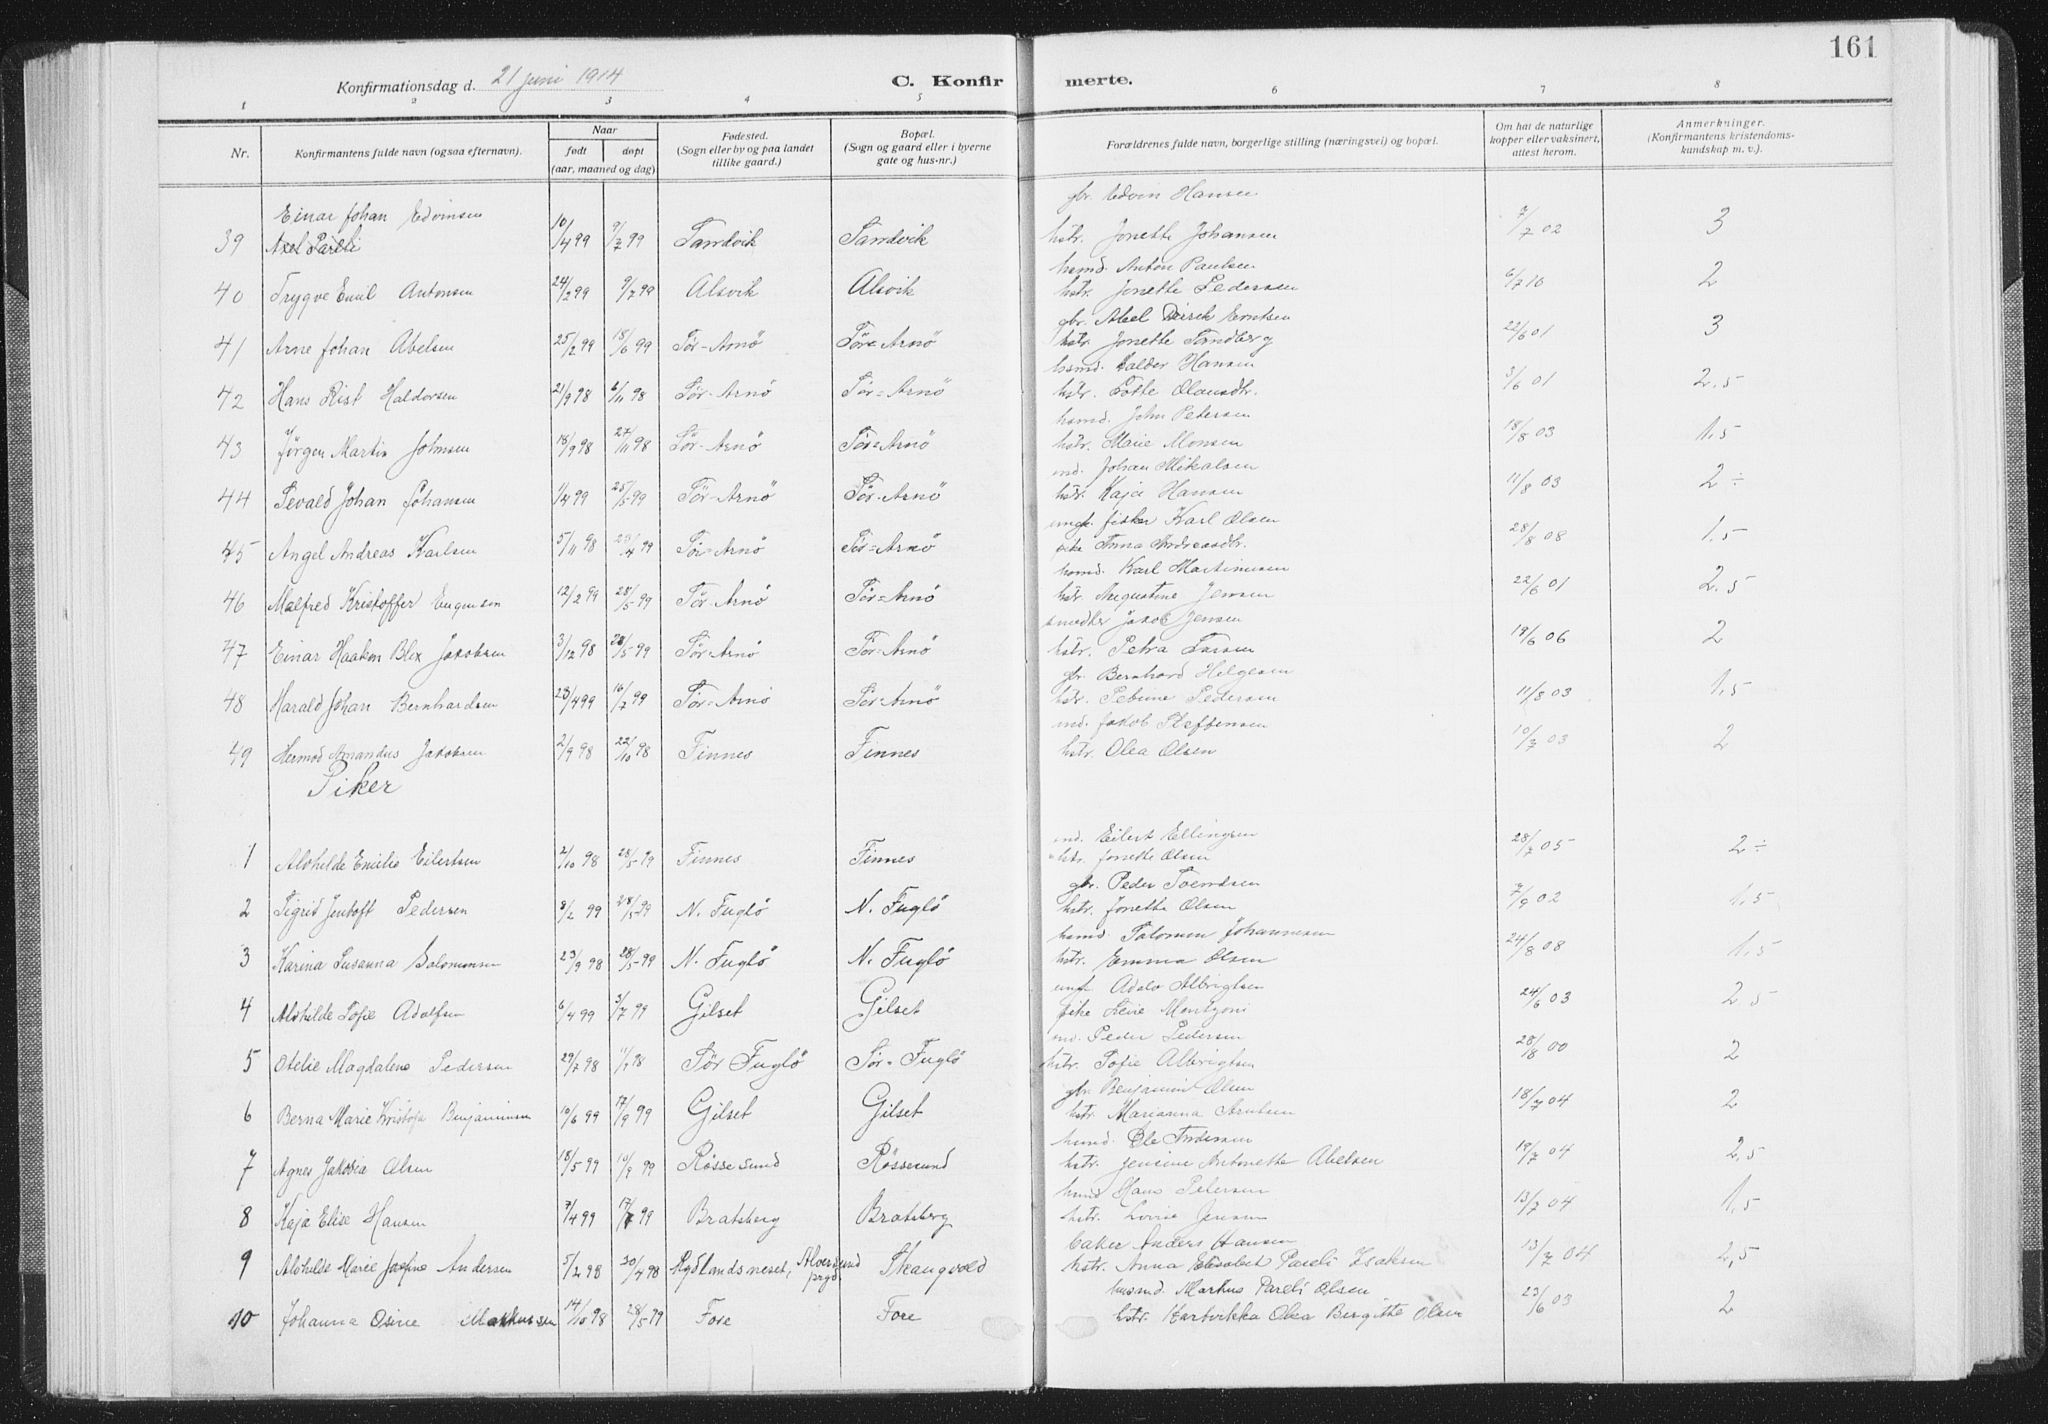 161
Konfirmationsdag d. 21 juni 1914 C. Konfir merte.
1 2 3 4 5 6 7 8
Nr. Konfirmantens fulde navn (ogsaa efternavn). Naar født døpt (aar, maaned og dag) Fødested. (Sogn eller by og paa landet tillike gaard.) Bopæl. (Sogn og gaard eller i byerne gate og hus-nr.) Forældrenes fulde navn, borgerlige stilling (næringsvei) og bopæl. Om hat de naturlige kopper eller vaksinert, attest herom. Anmerkninger. (Konfirmantens kristendoms-kundskap m. v.).
Einar Johan Edvinsen gbr. Edvin Hansen
39 Axel Pareli 10/4 99 9/7 99 Sandvik Sandvik hstr. Jonette Johansen 7/7 02 3
husmd. Anton Paulsen
40 Trygve Emil Antonsen 24/2 99 9/7 99 Alsvik Alsvik hstr. Jonette Pedersen 6/7 10 2
gbr. Abel Dirik Erntsen
41 Arne Johan Abelsen 25/2 99 18/6 99 Sør-Arnö Sør-Arnö hstr. Jonette Sandberg 22/6 01 3
husmd. Halder Hansen
42 Hans Rist Haldorsen 21/9 98 6/11 98 Sør-Arnö Sør=Arnö hstr. Lotte Olausdtr. 3/6 01 2.5
husmd. John Petersen
43 Jörgen Martin Johnsen 18/9 98 27/11 98 Sør-Arnö Sør=Arnö hstr. Marie Monsen 18/8 03 1.5
ind. Johan Mikalsen
44 Sevald Johan Johansen 1/4 99 25/5 99 Sør-Arnö Sør-Arnö hstr. Kaja Hansen 11/8 03 2 ÷
ungk. fisker Karl Olsen
45 Angel Andreas Karlsen 5/11 98 23/4 99 Sør=Arnö Sør=Arnö pike Anna Andreasdtr. 28/8 08 1.5
husmd. Karl Martinusen
46 Malfred Kristoffer 12/2 99 28/5 99 Sør-Arnö Sør=Arnö hstr. Augustine Jensen 22/6 01 2.5
snedker Jakob Jensen
47 Einar Haakon Blix Jakobsen 3/12 98 28/5 99 Sør=Arnö Sør=Arnö hstr. Petra Larsen 19/6 06 2
gbr. Bernhard Helgesen
48 Harald Johan Bernhardsen 23/4 99 16/7 99 Sør=Arnö Sør=Arnö hstr. Pedersen 11/8 03 1.5
ind. Jakob Steffensen
49 Hermod Amandus Jakobsen 2/9 98 22/10 98 Finnes Finnes hstr. Olea Olsen 10/7 03 2
Piker
ind. Eilert Ellingsen
1 Alvhilde Emilie Eilertsen 2/10 98 28/5 99 Finnes Finnes hstr. Jonette Olsen 28/7 05 2 ÷
gbr. Peder Svendsen
2 Sigrid Jentoft Pedersen 8/2 99 28/5 99 N. Fuglö N. Fuglö hstr. Jonette Olsen 7/9 02 1.5
husmd. Salomon Johannesen
3 Karina Susanna Salomonsen 23/9 98 28/5 99 N. Fuglö N. Fuglö hstr. Emma Olsen 24/8 08 1.5
ungk. Adolv Albrigtsen
4 Alvhilde Sofie Adolfsen 6/4 99 3/7 99 Gilset Gilset pike Lene Montzoni 24/6 03 2.5
ind. Peder Pedersen
5 Otelie Magdalene Pedersen 29/7 98 11/9 98 Sör Fuglö Sör=Fuglö hstr. Sofie Albrigtsen 28/8 00 2
gbr. Benjamin Olsen
6 Berna Marie Kristofa Benjaminsen 10/6 99 17/9 99 Gilset Gilset hstr. Marianna Arntsen 18/7 04 2
husmd. Ole Andersen
7 Agnes Jakobia Olsen 18/5 99 10/9 99 Røssesund Røssesund hstr. Jensine Antonette Abelsen 19/7 04 2,5
husmd Hans Petersen
8 Kaja Elise Hansen 7/4 99 17/7 99 Bratsberg Bratsberg hstr. Lovise Jensen 13/7 04 1,5
baker Anders Hansen
9 Alvhilde Marie Josefine Andersen 5/2 98 30/4 98 Rydlandsneset, Alversund prgd. Skaugvold hstr. Anna Elisabet Pareli Isaksen 13/7 04 2,5
husmd. Markus Pareli Olsen
10 Johanna Osine Markussen 14/10 98 28/5 99 Fore Fore hstr. Hartvikka Olea Birgitte Olsen 23/6 03 2